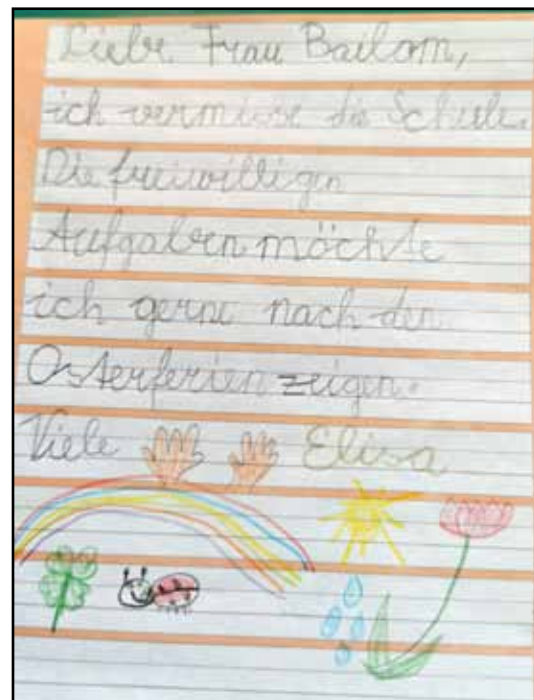 Liebe Frau Bailom,
ich vermisse die Schule.
Die freiwilligen
Aufgaben möchte
ich gerne nach den
Osterferien zeigen.
Viele Elisa